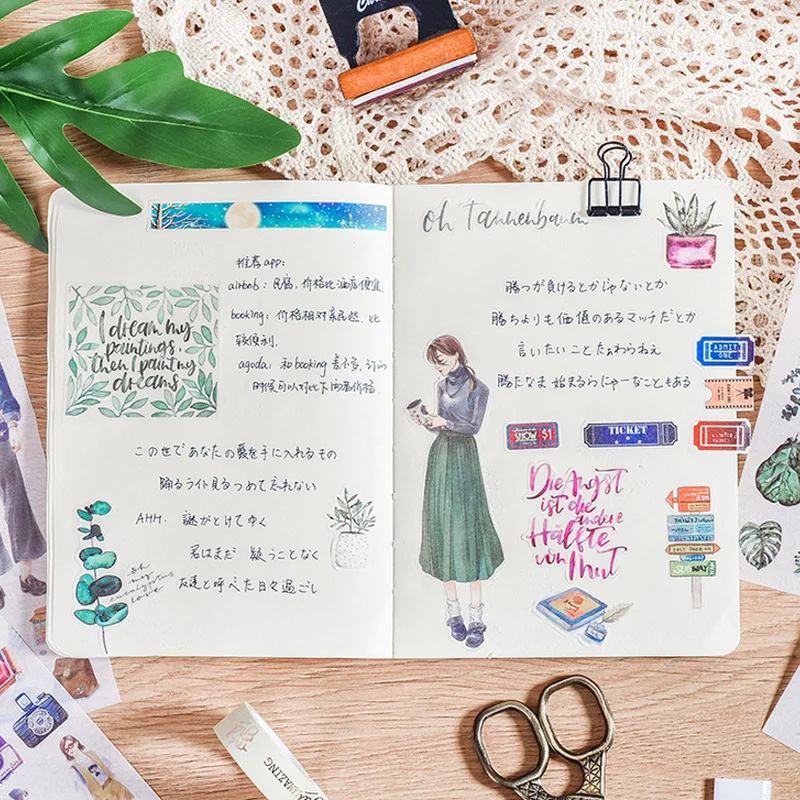 推荐app:
airbnb: 民宿，价格比酒店便宜.
booking: 价格相对亲民些，比
较便利.
agoda: 和booking差不多，订的
时候可以对比下两者价格.
I dream my
paintings,
then I paint my
dreams
この世であなたの愛を手に入れるもの
踊るライト見るつめて忘れない
AHH. 謎がとけてゆく
君はまだ 疑うことなく
友達と呼べた日々過ごし
oh
my
eucalyptus
love
oh Tannenbaum
勝つが負けるとかじゃないとか
勝ちよりも価値のあるマッチだとか
言いたいことたぁわらねぇ
勝たなま始まるらにゃーなこともある
ADMIT
ONE
SHOW $1
TICKET
Die Angst
ist die
andere
Hälfte
von Mut
EAST PARK
SUBWAY
AMAZING